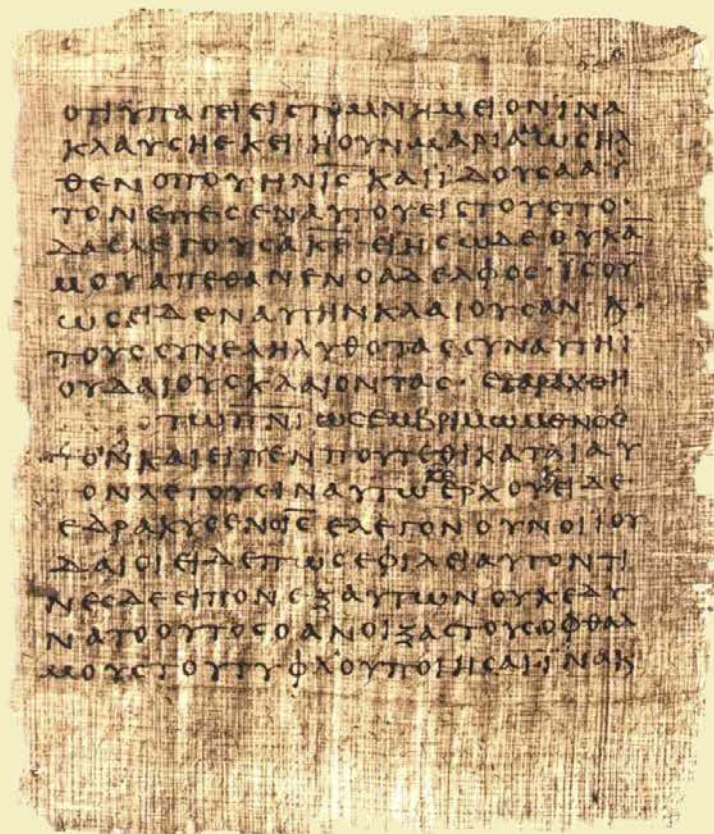 ΟΤΙΥΠΑΓΕΙΕΙϹΤΟΜΝΗΜΕΙΟΝΙΝΑ
ΚΛΑΥϹΗΕΚΕΙ·ΗΟΥΝΜΑΡΙΑΜωϹΗΛ
ΘΕΝΟΠΟΥΗΝΙ̅Ϲ̅ΚΑΙΪΔΟΥϹΑΑΥ
ΤΟΝΕΠΕϹΕΝΑΥΤΟΥΕΙϹΤΟΥϹΠΟ·
ΔΑϹΛΕΓΟΥϹΑΚ̅Ε̅·ΕΙΗϹωΔΕΟΥΚΑ̅
ΜΟΥΑΠΕΘΑΝΕΝΟΑΔΕΛΦΟϹ·Ι̅Ϲ̅ΟΥ
ωϹΕΙΔΕΝΑΥΤΗΝΚΛΑΙΟΥϹΑΝ·Κ·
ΤΟΥϹϹΥΝΕΛΗΛΥΘΟΤΑϹϹΥΝΑΥΤΗΙ
ΟΥΔΑΙΟΥϹΚΛΑΙΟΝΤΑϹ·ΕΤΑΡΑΧΘΗ
ΤωΠ̅Ν̅Ι̅ωϹΕΜΒΡΙΜωΜΕΝΟϹ
ΤΟΝΚΑΙΕΙΠΕΝΠΟΥΤΕΘΙΚΑΤΑΙΑΥ
ΟΝΛΕΓΟΥϹΙΝΑΥΤωΚ̅Ε̅ΕΡΧΟΥΕΙΔΕ·
ΕΔΡΑΚΥϹΕΝΟΙ̅Ϲ̅ΕΛΕΓΟΝΟΥΝΟΙΙΟΥ
ΔΑΙΟΙΕΙΔΕΠωϹΕΦΙΛΕΙΑΥΤΟΝΤΙ
ΝΕϹΔΕΕΙΠΟΝΕΞΑΥΤωΝΟΥΚΕΔΥ
ΝΑΤΟΟΥΤΟϹΟΑΝΟΙΞΑϹΤΟΥϹΟΦΘΑΛ
ΜΟΥϹΤΟΥΤΥΦΛΟΥΠΟΙΗϹΑΙ·ΪΝΑΚ